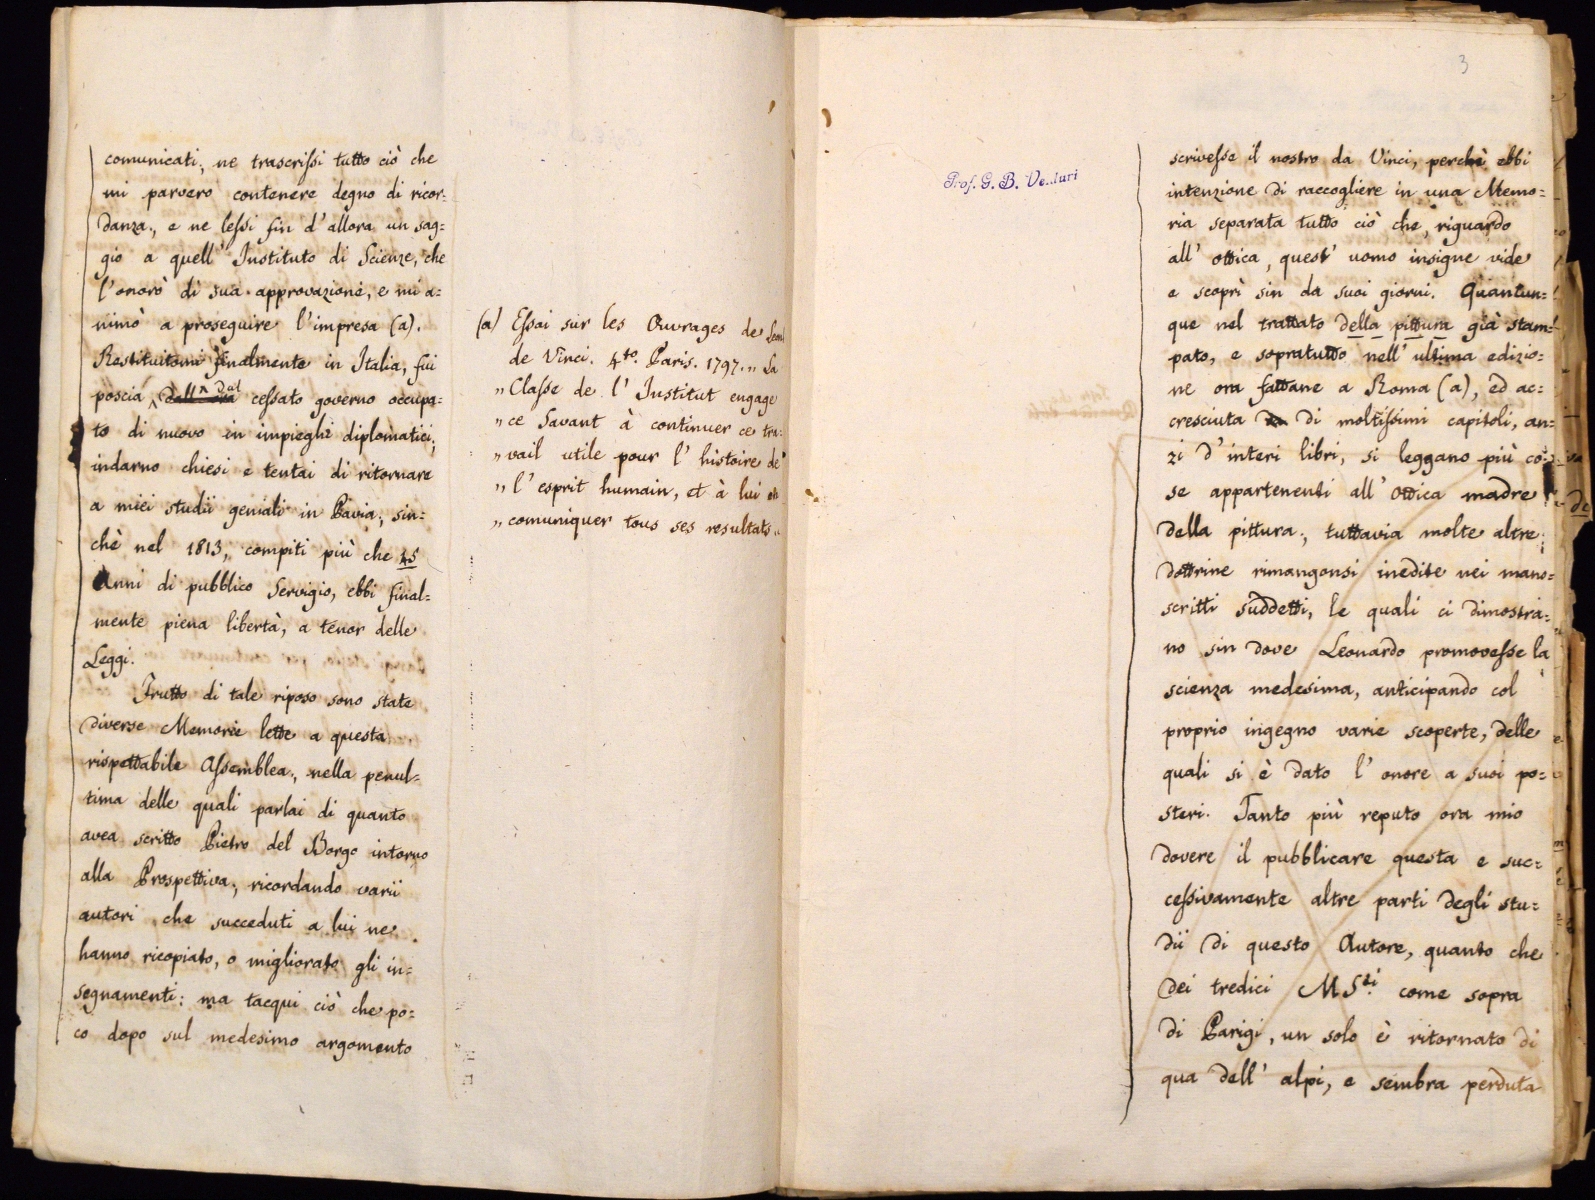 comunicati; ne trascrissi tutto ciò che
mi parvero contenere degno di ricor=
danza; e ne lessi fin d'allora un sag=
gio a quell' Instituto di Scienze, che
l'onorò di sua approvazione, e mi a=
nimò a proseguire l'impresa (a).
Restituitomi finalmente in Italia, fui
poscia dal cessato governo occupa=
to di nuovo in impieghi diplomatici;
indarno chiesi e tentai di ritornare
a miei studii geniali in Pavia; sin=
chè nel 1813, compiti più che 45
Anni di pubblico Servigio, ebbi final=
mente piena libertà, a tenor delle
Leggi.
Frutto di tale riposo sono state
diverse Memorie lette a questa
rispettabile Assemblea; nella penul=
tima delle quali parlai di quanto
avea scritto Pietro del Borgo intorno
alla Prospettiva; ricordando varii
autori che succeduti a lui ne
hanno ricopiato, o migliorato gli in=
segnamenti: ma tacqui ciò che po=
co dopo sul medesimo argomento
(a) Essai sur les Ouvrages de Leon
de Vinci. 4to. Paris. 1797. „ La
„ Classe de l' Institut engage
„ ce Savant à continuer ce tra=
„ vail utile pour l' histoire de
„ l' esprit humain, et à lui en
„ comuniquer tous ses resultats „
3
Prof. G. B. Venturi
scrivesse il nostro da Vinci, perchè ebbi
intenzione di raccogliere in una Memo=
ria separata tutto ciò che, riguardo
all' ottica, quest' uomo insigne vide
e scoprì sin da suoi giorni. Quantun=
que nel trattato della pittura già stam=
pato, e sopratutto nell' ultima edizio=
ne ora fattane a Roma (a), ed ac=
cresciuta di moltissimi capitoli, an=
zi d'interi libri, si leggano più co=
se appartenenti all' Ottica madre
della pittura; tuttavia molte altre
dottrine rimangonsi inedite nei mano=
scritti suddetti, le quali ci dimostra=
no sin dove Leonardo promovesse la
scienza medesima, anticipando col
proprio ingegno varie scoperte, delle
quali si è dato l' onore a suoi po=
steri. Tanto più reputo ora mio
dovere il pubblicare questa e suc=
cessivamente altre parti degli stu=
dii di questo Autore, quanto che
dei tredici MSti come sopra
di Parigi, un solo è ritornato di
qua dell' alpi, e sembra perduta